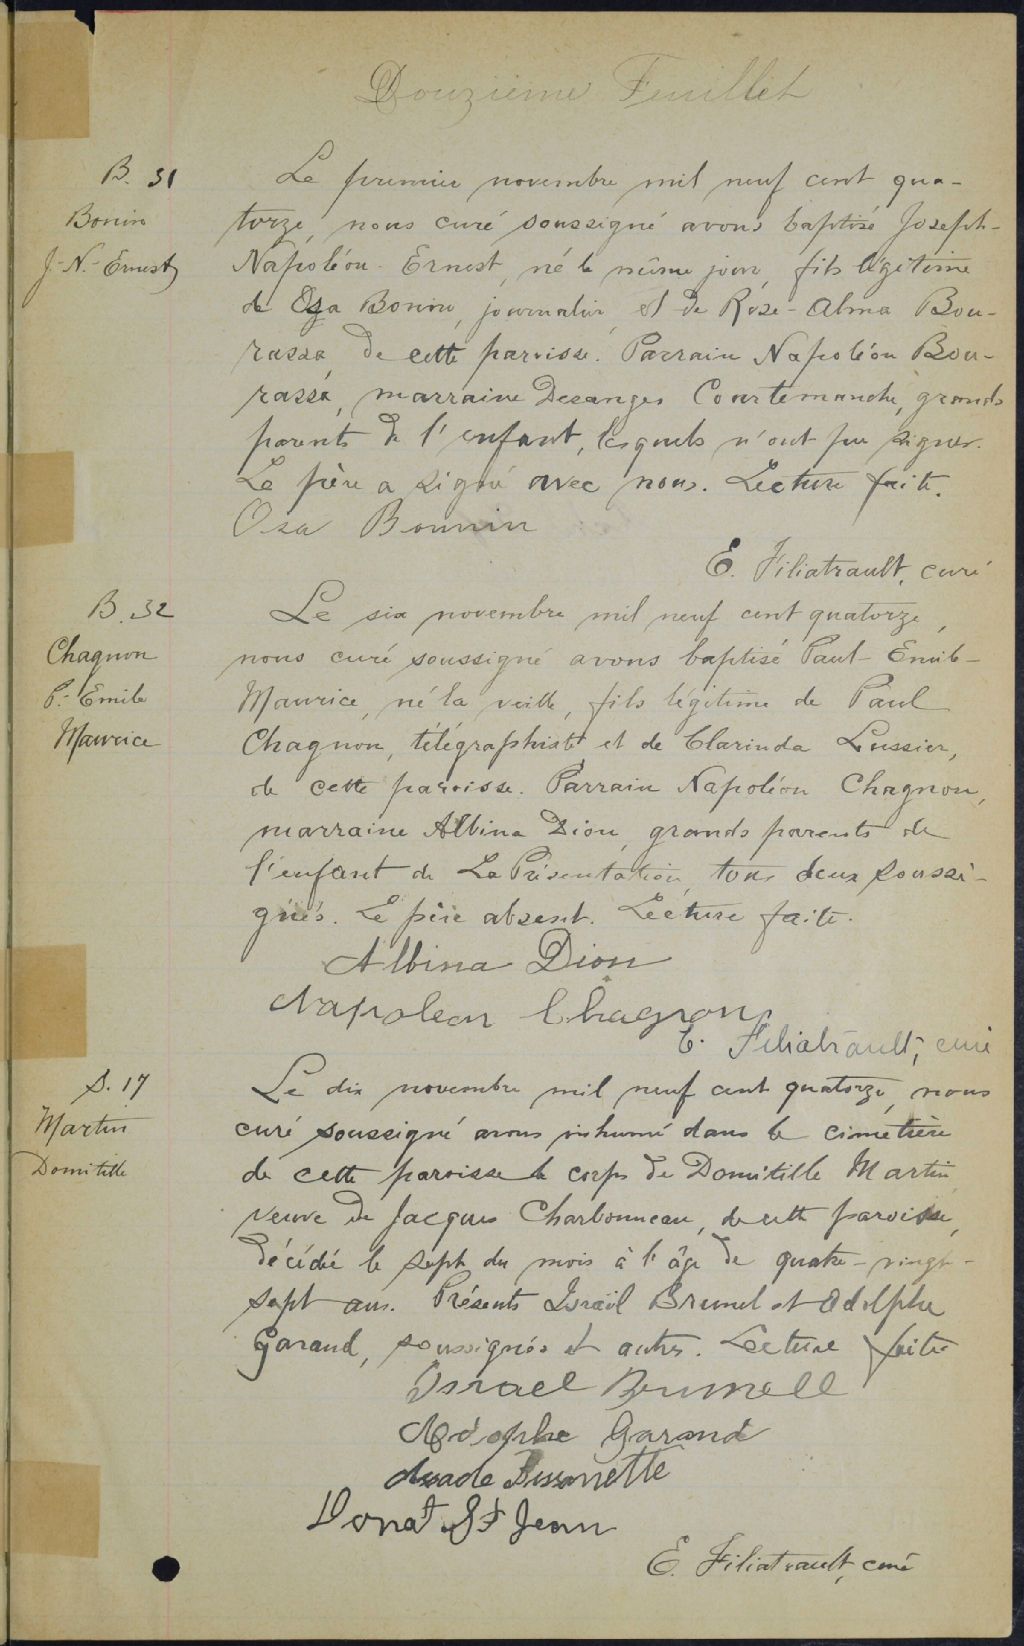 Douzième Feuillet
B. 31
Bonin
J.-N.-Ernest
Le premier novembre mil neuf cent qua-
torze, nous curé soussigné avons baptisé Joseph-
Napoléon-Ernest, né le même jour, fils légitime
de Oza Bonin, journalier et de Rose-Alma Bou-
rassa de cette paroisse. Parrain Napoléon Bou-
rassa, marraine Desanges Courtemanche, grands
parents de l'enfant, lesquels n'ont pu signer.
Le père a signé avec nous. Lecture faite.
Oza Bonnin
E. Filiatrault, curé
B. 32
Chagnon
P.-Emile
Maurice
Le six novembre mil neuf cent quatorze,
nous curé soussigné avons baptisé Paul-Emile-
Maurice, né la veille, fils légitime de Paul
Chagnon, télégraphiste et de Clarinda Lussier,
de cette paroisse. Parrain Napoléon Chagnon,
marraine Albina Dion, grands parents de
l'enfant de La Présentation, tous deux soussi-
gnés. Le père absent. Lecture faite.
Albina Dion
Napoleon Chagnon
E. Filiatrault, curé
S. 17
Martin
Domitille
Le dix novembre mil neuf cent quatorze, nous
curé soussigné avons inhumé dans le cimetière
de cette paroisse le corps de Domitille Martin
veuve de Jacques Charbonneau, de cette paroisse,
décédée le sept du mois à l'âge de quatre-vingt-
sept ans. Présents Israël Brunel et Adolphe
Garand, soussignés et autres. Lecture faite
Israel Brunell
Adophe Garand
Bissonette
Donat St Jean
E. Filiatrault, curé